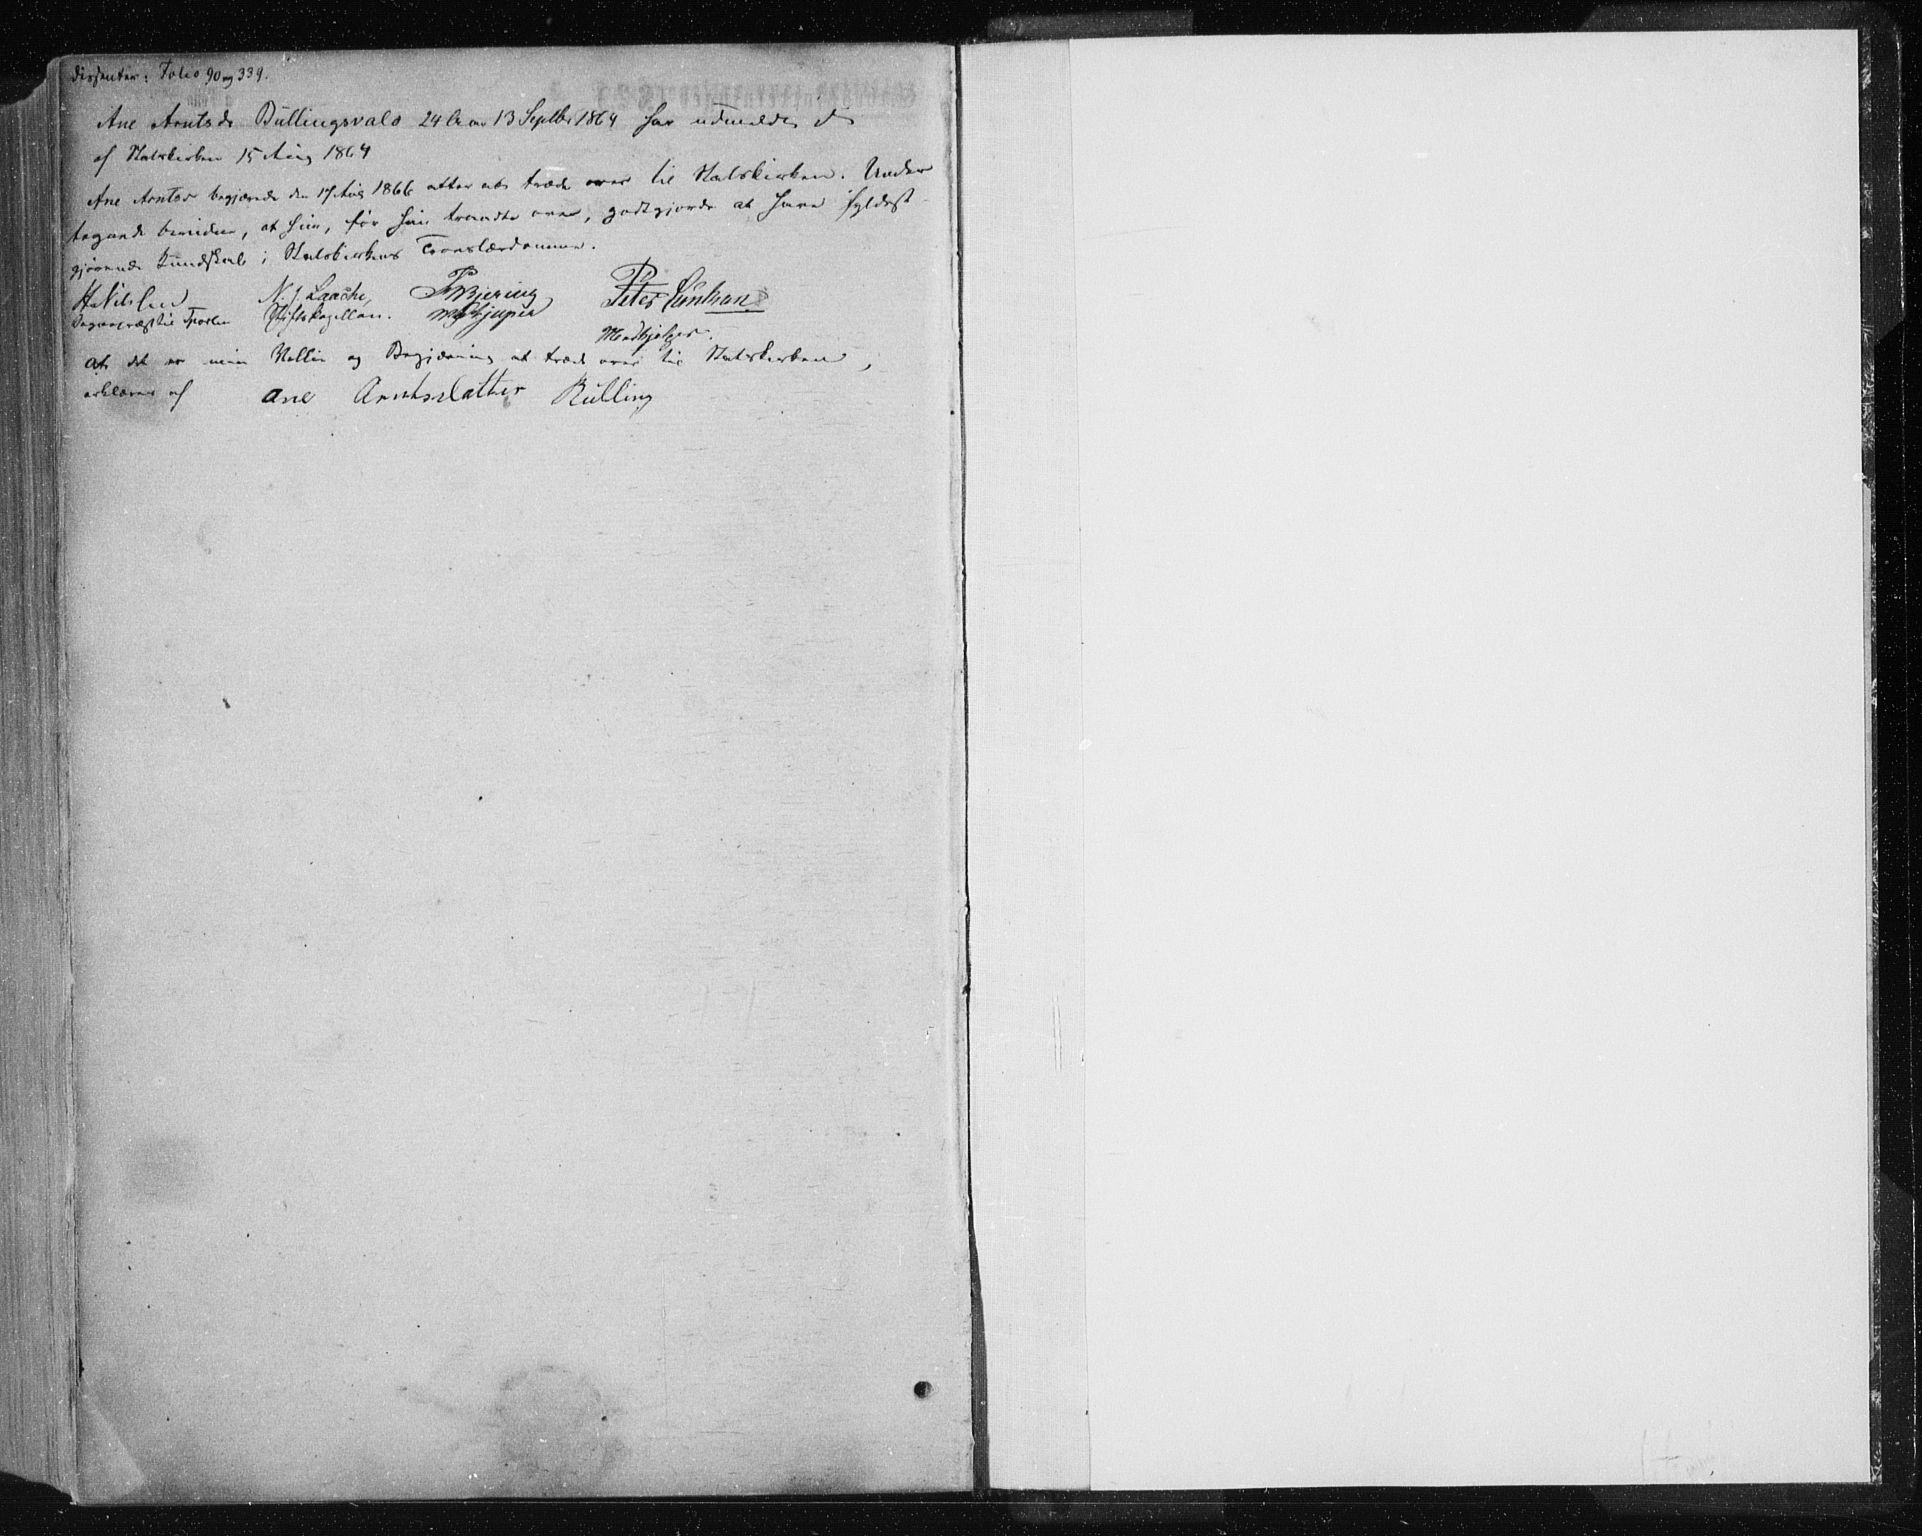 Dissenter: Folio 90 og 339.
Ane Arntsd. Bullingsvald 24 Aar 13 Septbr 1864 har udmeldt sig
af Statskirken 15 Aug 1864
Ane Arntsd. begjærede den 17 Aug 1866 atter at træde over til Statskirken. Under
tegnede bevidner, at hun, før hun traadte over, godtgjorde at have fyldest
gjørende Kundskab i Statskirkens Troeslærdomme.
H. Nilssen N. J. Laache, Bjering Peter
Sogneprest til Stiftskapellan. Medhjelper.
At det er min Villie og Begjæring at træde over til Statskirken,
erklæres af Ane Arntsdatter Bulling